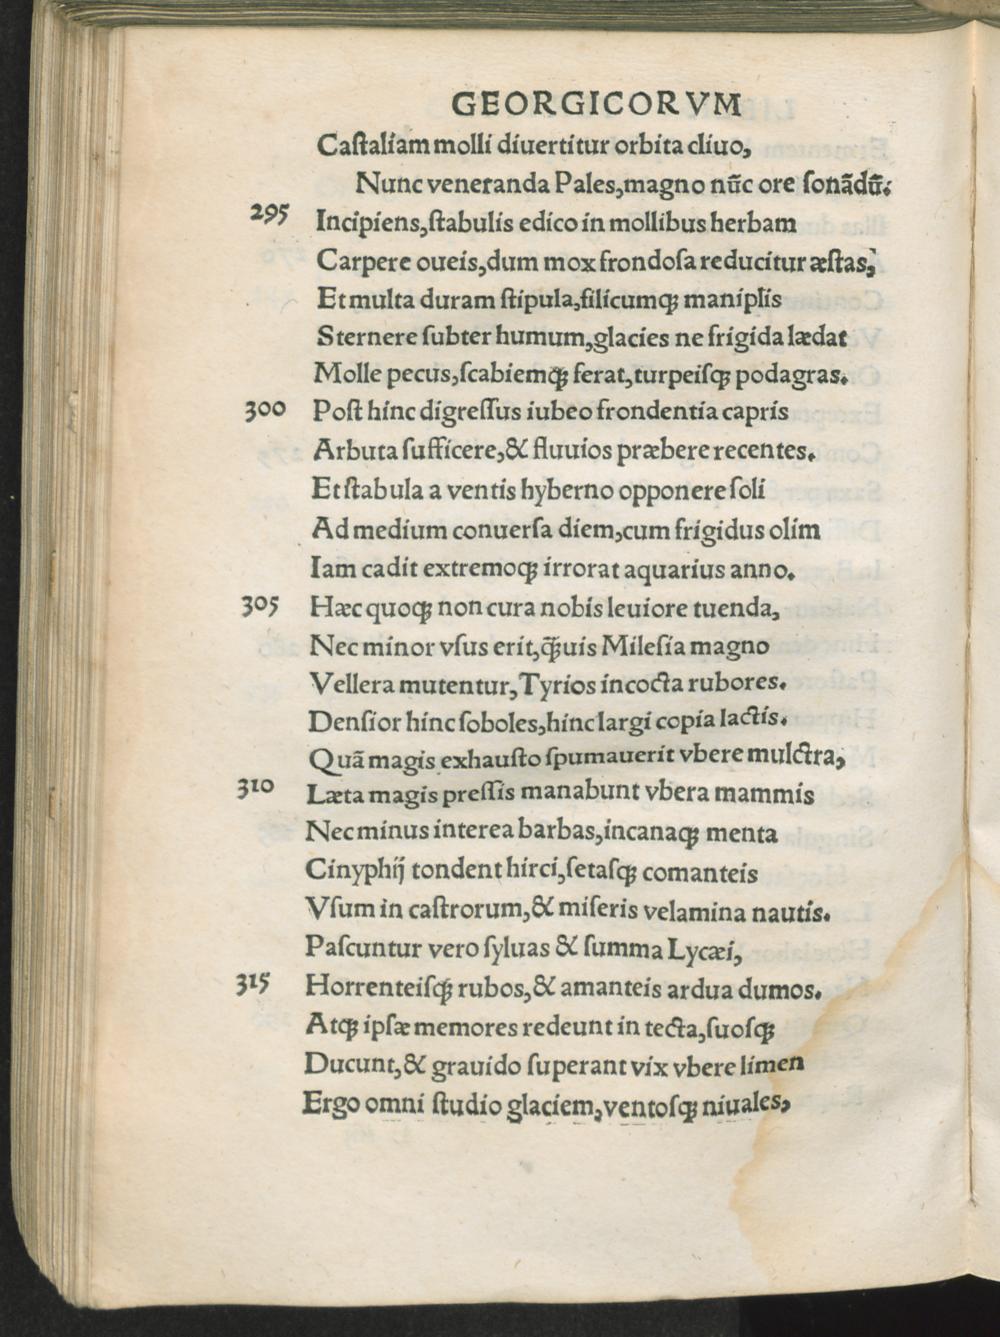 GEORGICORVM
Caſtaliam molli diuertitur orbita cliuo,
Nunc veneranda Pales, magno nūc ore ſonādū.
295 Incipiens, ſtabulis edico in mollibus herbam
Carpere oueis, dum mox frondoſa reducitur æſtas,
Et multa duram ſtipula, filicumq; maniplis
Sternere ſubter humum, glacies ne frigida lædat
Molle pecus, ſcabiemq́; ferat, turpeiſq; podagras.
300 Poſt hinc digreſſus iubeo frondentia capris
Arbuta ſufficere, & fluuios præbere recentes.
Et ſtabula a ventis hyberno opponere ſoli
Ad medium conuerſa diem, cum frigidus olim
Iam cadit extremoq; irrorat aquarius anno.
305 Hæc quoq; non cura nobis leuiore tuenda,
Nec minor vſus erit, q̃uis Mileſia magno
Vellera mutentur, Tyrios incocta rubores.
Denſior hinc ſoboles, hinc largi copia lactis.
Quā magis exhauſto ſpumauerit vbere mulctra,
310 Læta magis preſſis manabunt vbera mammis
Nec minus interea barbas, incanaq; menta
Cinyphij tondent hirci, ſetaſq; comanteis
Vſum in caſtrorum, & miſeris velamina nautis.
Paſcuntur vero ſyluas & ſumma Lycæi,
315 Horrenteiſq́; rubos, & amanteis ardua dumos.
Atq; ipſæ memores redeunt in tecta, ſuoſq;
Ducunt, & grauido ſuperant vix vbere limen
Ergo omni ſtudio glaciem, ventoſq; niuales,